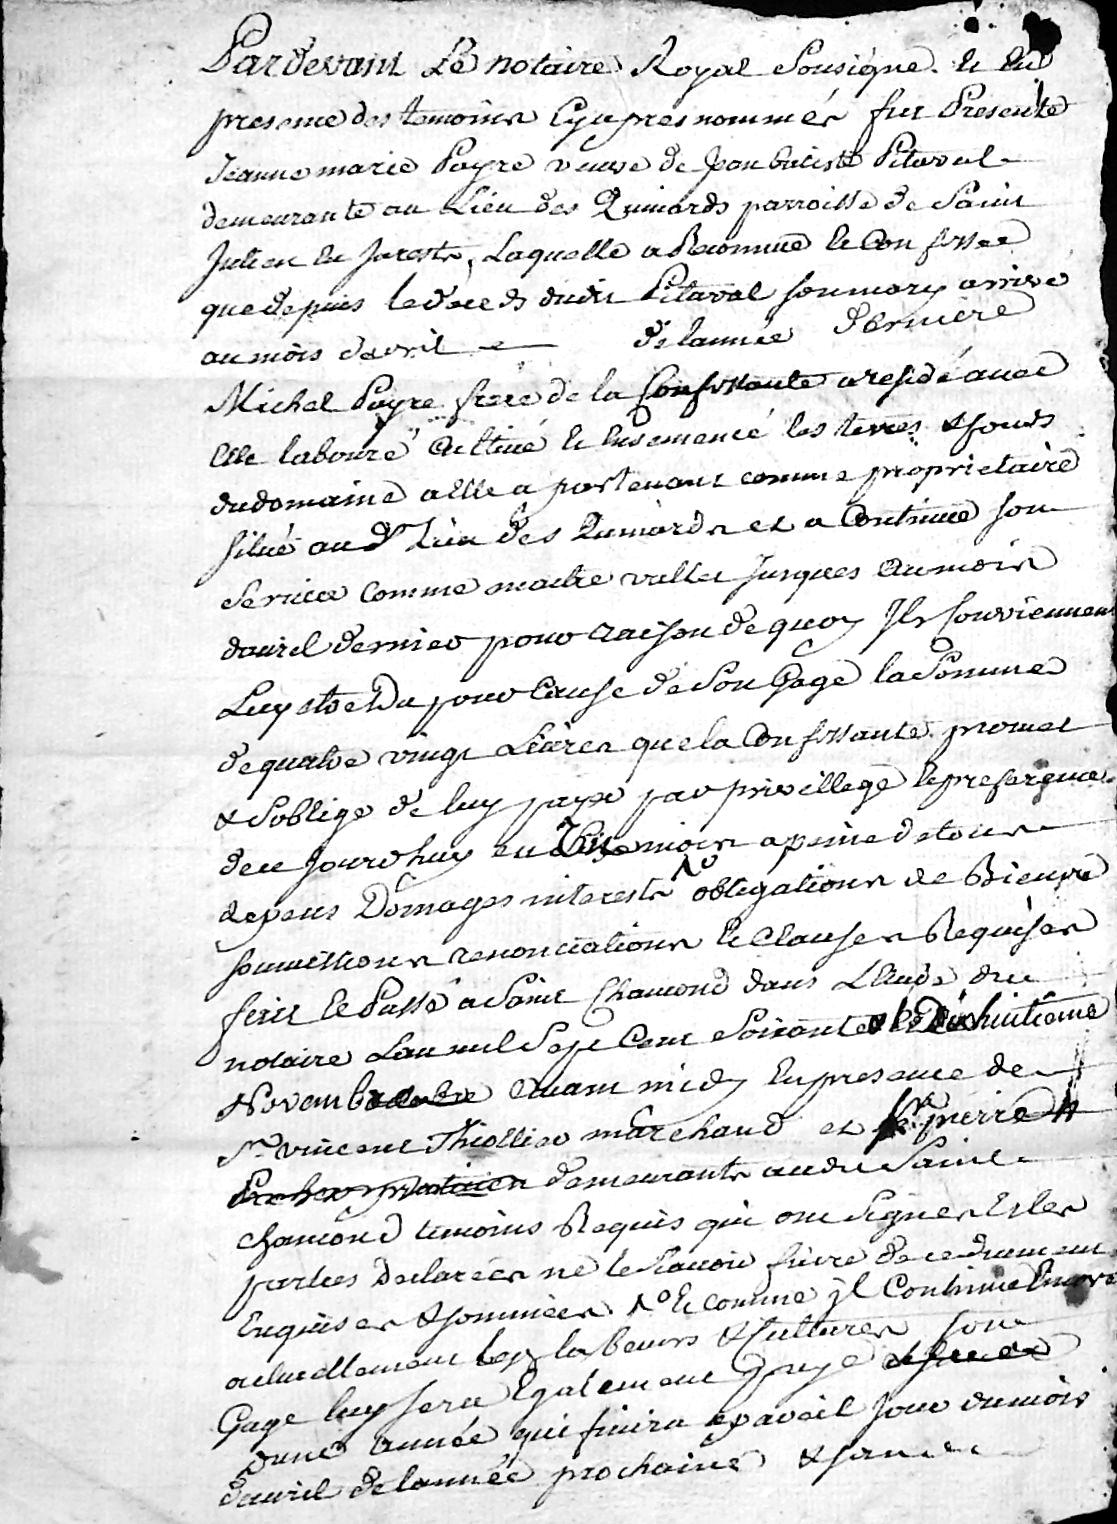 Pardevant Le notaire Royal Sousigné. & En
presence des temoins Cy apres nommés fut Presente
Jeanne marie Payre veuve de Jean batiste Pitaval
demeurante au Lieu des Qumards parroisse de Saint
Julien en Jarests, Laquelle a Reconnue & Confessee
que depuis le deceds dudit Pitaval son mary arrivé
au mois davril de lannée derniere
Michel Payre frere de la Confessante a residé avec
Elle labouré Cultivé & Ensemencé les terres & fonds
du domaine a Elle apartenant comme proprietaire
situé audt Lieu des Qumards et a Continué son
Service comme maitre vallet Jusques au mois
davril dernier pour raison de quoy Ils souviennent
Luy etre Du pour Cause de Son Gage la Somme
de quatre vingt Livres que la Confessante promet
& Soblige de luy payer par privillege & preferance
de ce Jourdhuy en mois a peine de tous
depens Domages interests No obligations de Bien
soumissions renonciations & Clauses Requises
fait & Passé a Saint Chamond dans Lestude du
notaire Lan mil Sept Cent Soixante & le Dixhuitieme
Novembre avant midy En presence de
Sr. vincent Thiollier marchand et Sr. pierre
demeurants audit Saint
chamond temoins Requis qui ont Signes & les
parties Declarées ne le Scavoir faire de ce duement
Enquises & sommées No & comme jl Continue Encore
actuellement les labeurs & Cultures son
Gage luy sera Egalement payé
dune année qui finira a pareil jour du mois
davril de lannée prochaine &